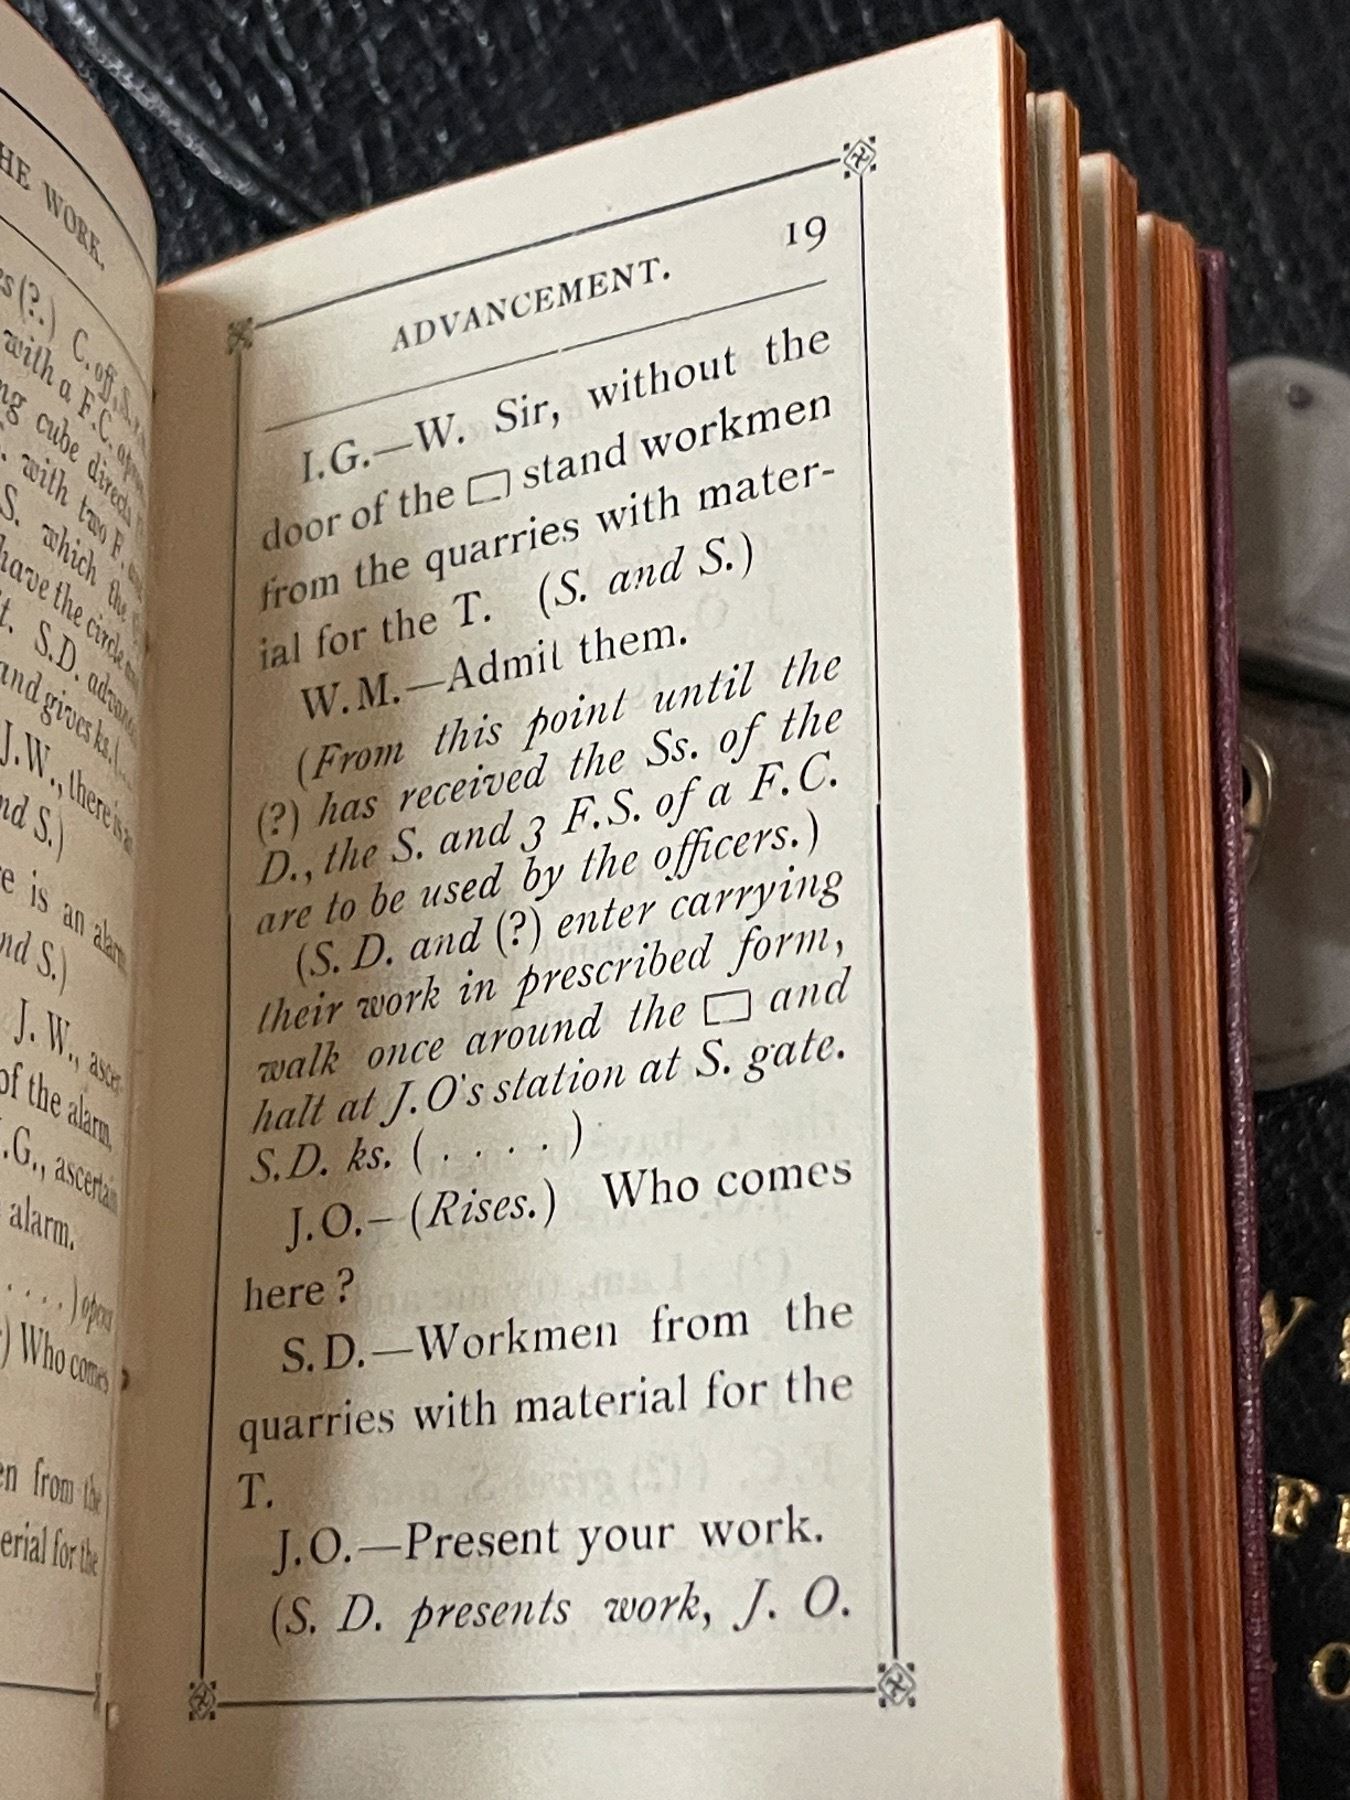 HE WORK.
(?.) C. off, S.
with a F.C.
ng cube
. with two F.
S. which the
have the circle
t. S.D.
and gives ks.
J.W., there is
nd S.)
e is an alarm
nd S.)
J. W.,
of the alarm,
.G., ascertain
alarm.
. . . . )
) Who comes
en from the
erial for the
ADVANCEMENT. 19
I.G.—W. Sir, without the
door of the ▭ stand workmen
from the quarries with mater-
ial for the T. (S. and S.)
W.M.—Admit them.
(From this point until the
(?) has received the Ss. of the
D., the S. and 3 F.S. of a F.C.
are to be used by the officers.)
(S. D. and (?) enter carrying
their work in prescribed form,
walk once around the ▭ and
halt at J.O's station at S. gate.
S.D. ks. ( . . . . )
J.O.—(Rises.) Who comes
here?
S.D.—Workmen from the
quarries with material for the
T.
J.O.—Present your work.
(S. D. presents work, J. O.